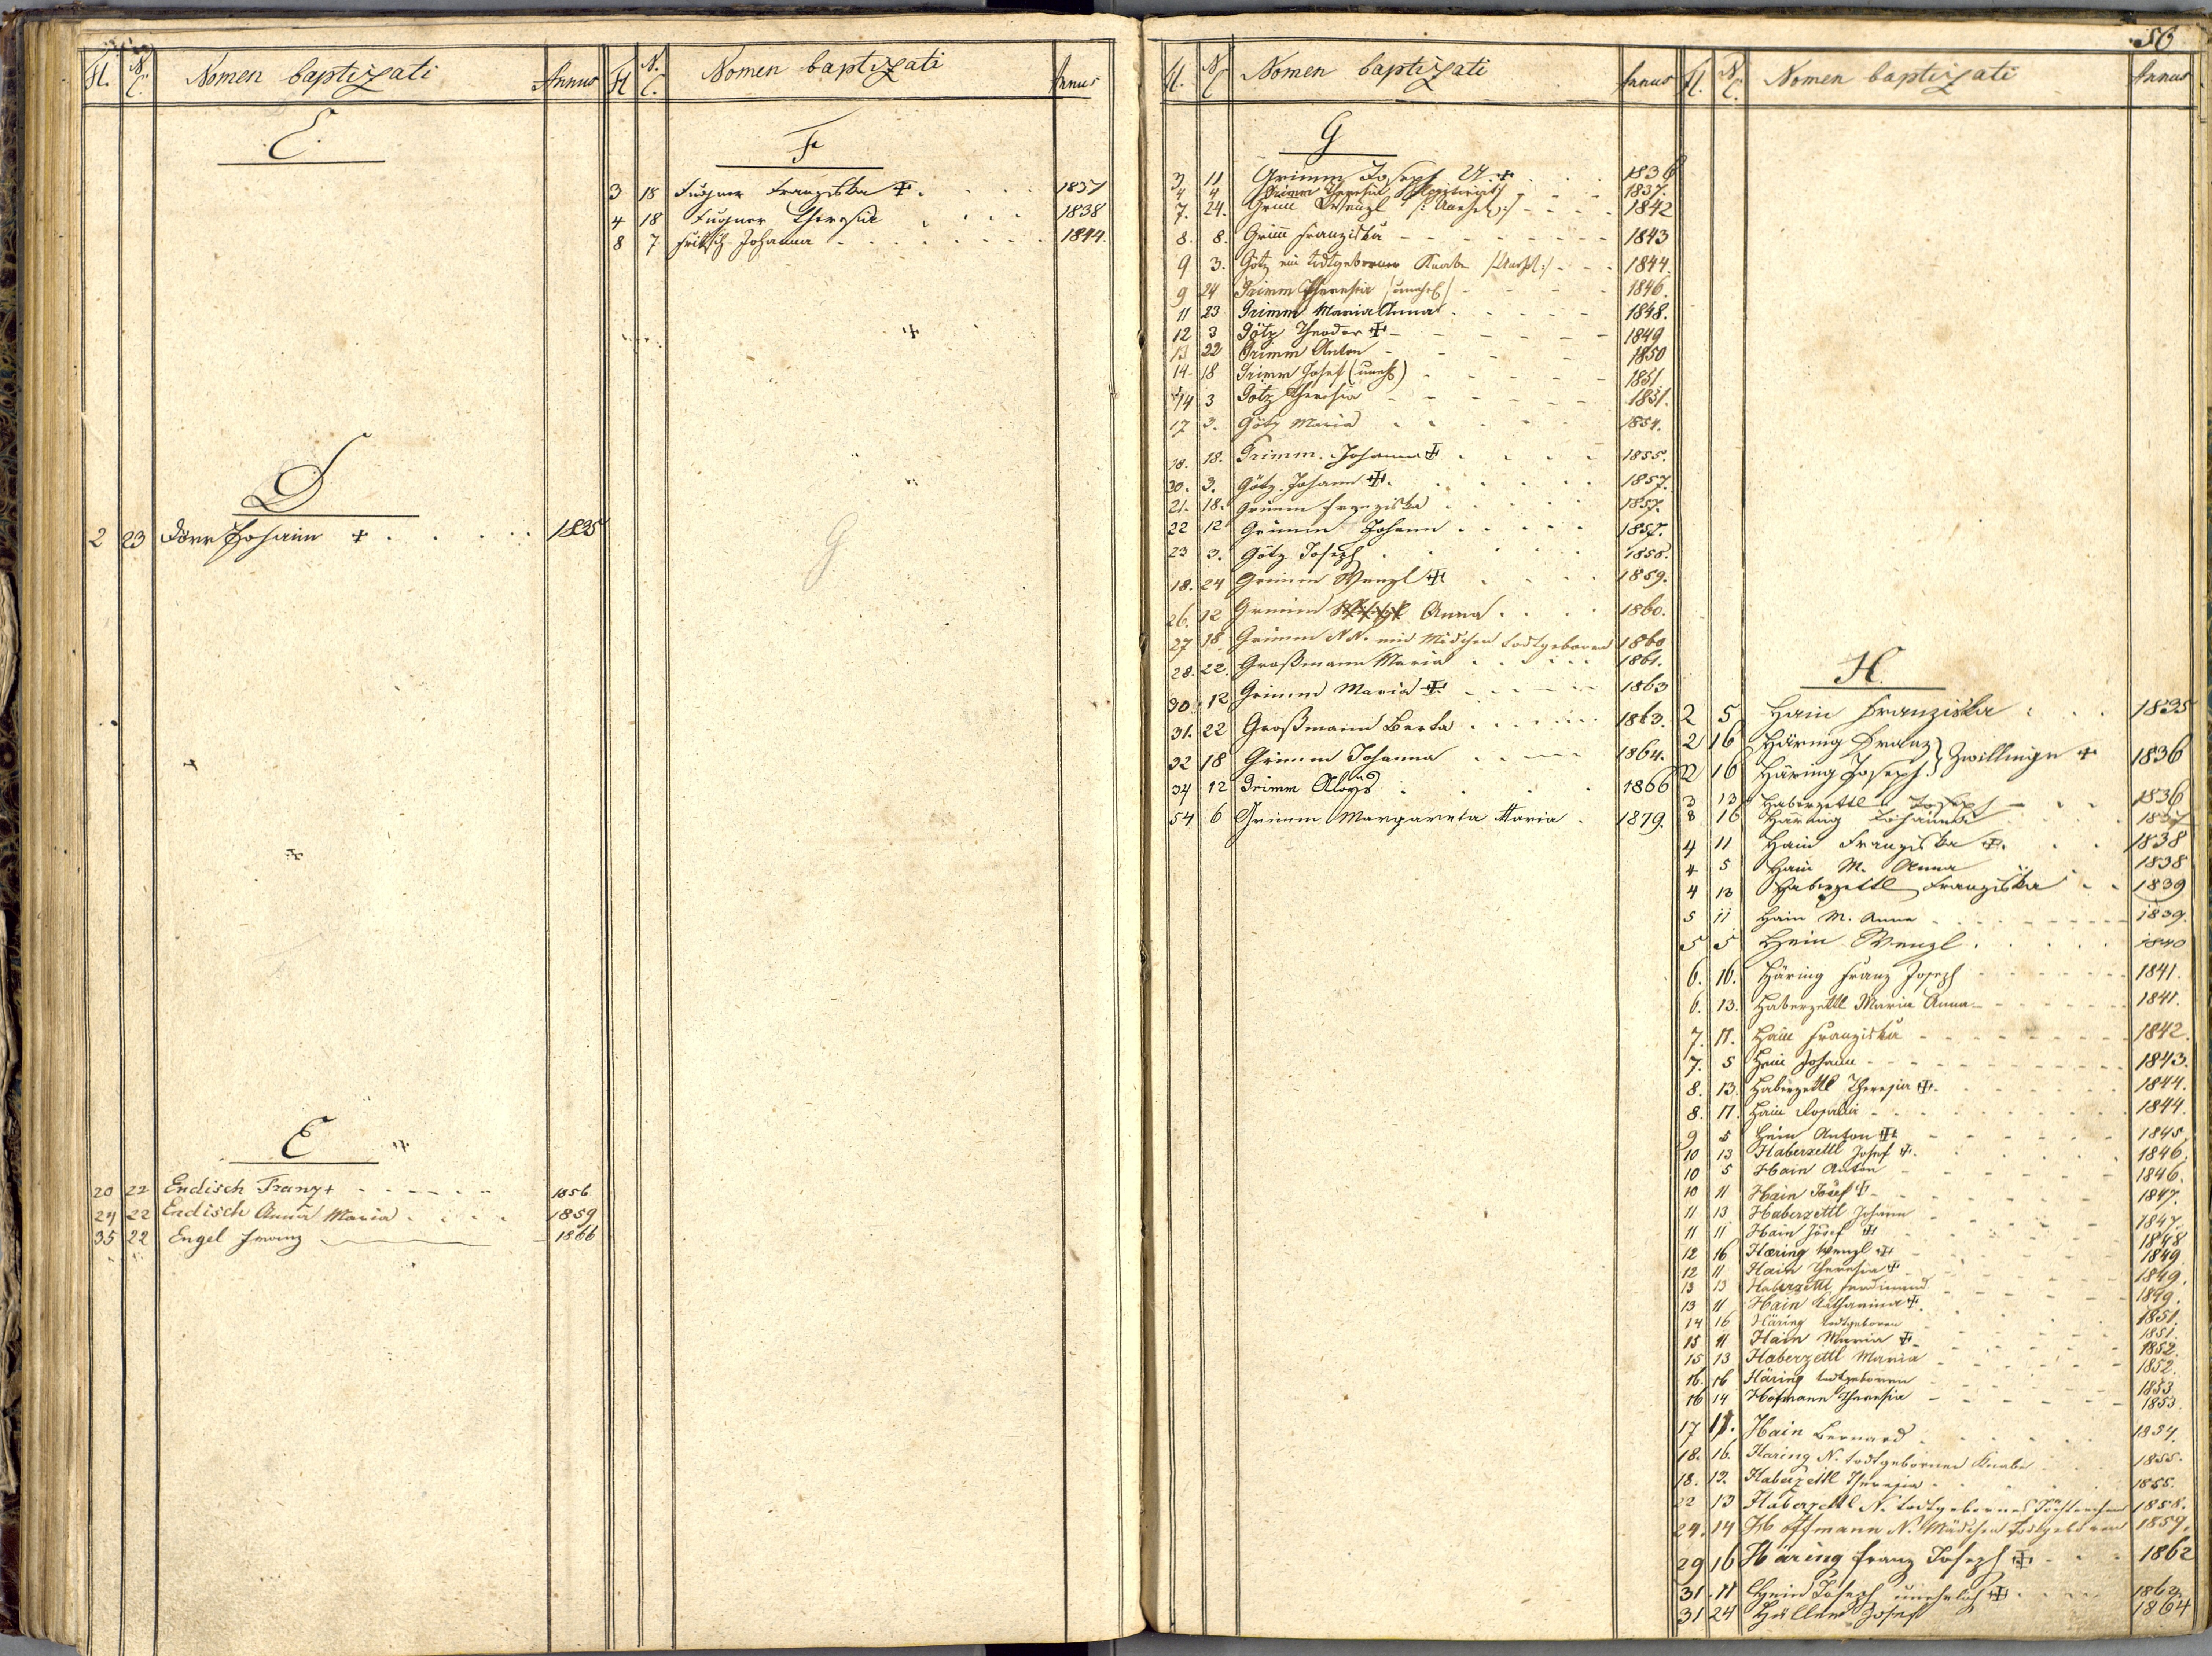 Fl. N. C. Nomen baptizati Annus
C.
D
2 23 Dörr Johann + 1835
E
20 22 Endisch Franz + 1856
24 22 Endisch Anna Maria 1859
35 22 Engel Franz 1866
Fl N. C. Nomen baptizati Annus
F
3 18 Fugner Franziska + 1837
4 18 Fugner Theresia 1838
8 7 Fritsch Johanna 1844
G
Fl. N C Nomen baptizati Annus
G
3 11 Grimm Joseph U. + 1836
4 4 Grimm Theresia 1837.
7. 24. Grim Wenzl 1842
8. 8. Grim Franziska 1843
9 3. Götz ein todtgeborner Knabe 1844.
9 24 Grimm Theresia (unehel) 1846.
11 23 Grimm Maria Anna 1848.
12 3 Götz Theodor + 1849
13 22 Grimm Anton 1850
14 18 Grimm Josef (unehl) 1851
14 3 Götz Theresia 1851.
17 3. Götz Maria 1854.
18. 18. Grimm. Johanna + 1855.
20. 3. Götz. Johann +. 1857.
21. 18. Grimm Franziska 1857.
22 12 Grimm Johann 1857.
23 3. Götz Joseph 1858.
18. 24 Grimm Wenzl + 1859.
26. 12 Grimm Anna 1860.
27 18 Grimm N N. ein Mädchen todtgeboren 1860
28. 22. Großmann Maria 1861.
30. 12 Grimm Maria + 1863
31. 22 Großmann Berta 1863.
32 18 Grimm Johanna 1864.
34 12 Grimm Aloys 1866
54 6 Grimm Margareta Maria 1879.
56
Fl. N C. Nomen baptizati Annus
H.
2 5 Hain Franziska 1835
2 16 Häring Franz } Zwillinge + 1836
2 16 Häring Joseph
3 13 Haberzettl Joseph 1836
3 16 Häring Johanna 1837
4 11 Hain Franziska +. 1838
4 5 Hain M. Anna 1838
4 13 Haberzettl Franziska 1839
5 11 Hain M. Anna 1839.
5 5 Hein Wenzl. 1840
6. 16. Häring Franz Joseph 1841.
6. 13. Haberzettl Maria Anna 1841.
7. 11. Hain Franziska 1842.
7. 5 Hein Johann 1843.
8. 13. Haberzettl Theresia +. 1844.
8. 11. Hain Rosalia 1844.
9 5 Hein Anton + 1845
10 13 Haberzettl Josef +. 1846.
10 5 Hain Anton 1846.
10 11 Hain Josef + 1847.
11 13 Haberzettl Johann 1847.
11 11 Hain Josef + 1848
12 16 Hæring Wenzl + 1849
12 11 Hain Theresia + 1849.
13 13 Haberzettl Ferdinand 1849.
13 11 Hain Katharina +. 1851.
14 16 Häring todtgeboren 1851.
15 11 Hain Maria + 1852.
15 13 Haberzettl Maria 1852.
16. 16 Häring todtgeboren 1853
16 14 Hofmann Theresia 1853.
17 11. Hain Bernard 1854.
18. 16. Haring N. todtgeborner Knabe 1855.
18. 13. Haberzettl Theresia 1855.
22 13 Haberzettl N. todtgebornes Töchterchen 1858.
24. 14 Hoffmann N. Mädchen todtgeboren 1859.
29 16 Häring Franz Joseph + 1862
31. 11 Hein Joseph unehelich + 1863.
31 24 Hüller Josef 1864